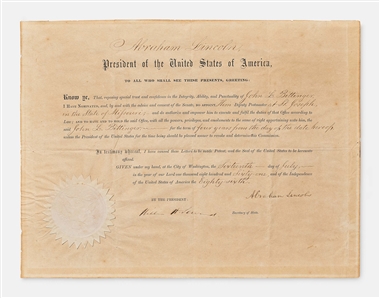 Abraham Lincoln,
President of the United States of America,
TO ALL WHO SHALL SEE THESE PRESENTS, GREETING:
Know ye, That reposing special trust and confidence in the Integrity, Ability, and Punctuality of John L. Bittinger
I HAVE NOMINATED, and, by and with the advice and consent of the Senate, DO APPOINT Him Deputy Postmaster at St. Joseph,
in the State of Missouri; and do authorize and empower him to execute and fulfil the duties of that Office according to
LAW; AND TO HAVE AND TO HOLD the said Office, with all the powers, privileges, and emoluments to the same of right appertaining unto him, the
said John L. Bittinger for the term of four years from the day of the date hereof,
unless the President of the United States for the time being should be pleased sooner to revoke and determine this Commission.
In testimony whereof, I have caused these LETTERS to be made PATENT, and the Seal of the United States to be hereunto
affixed.
GIVEN under my hand, at the City of Washington, the Sixteenth day of July
in the year of our Lord one thousand eight hundred and Sixty one, and of the Independence
of the United States of America the Eighty sixth.
Abraham Lincoln
BY THE PRESIDENT:
Secretary of State.